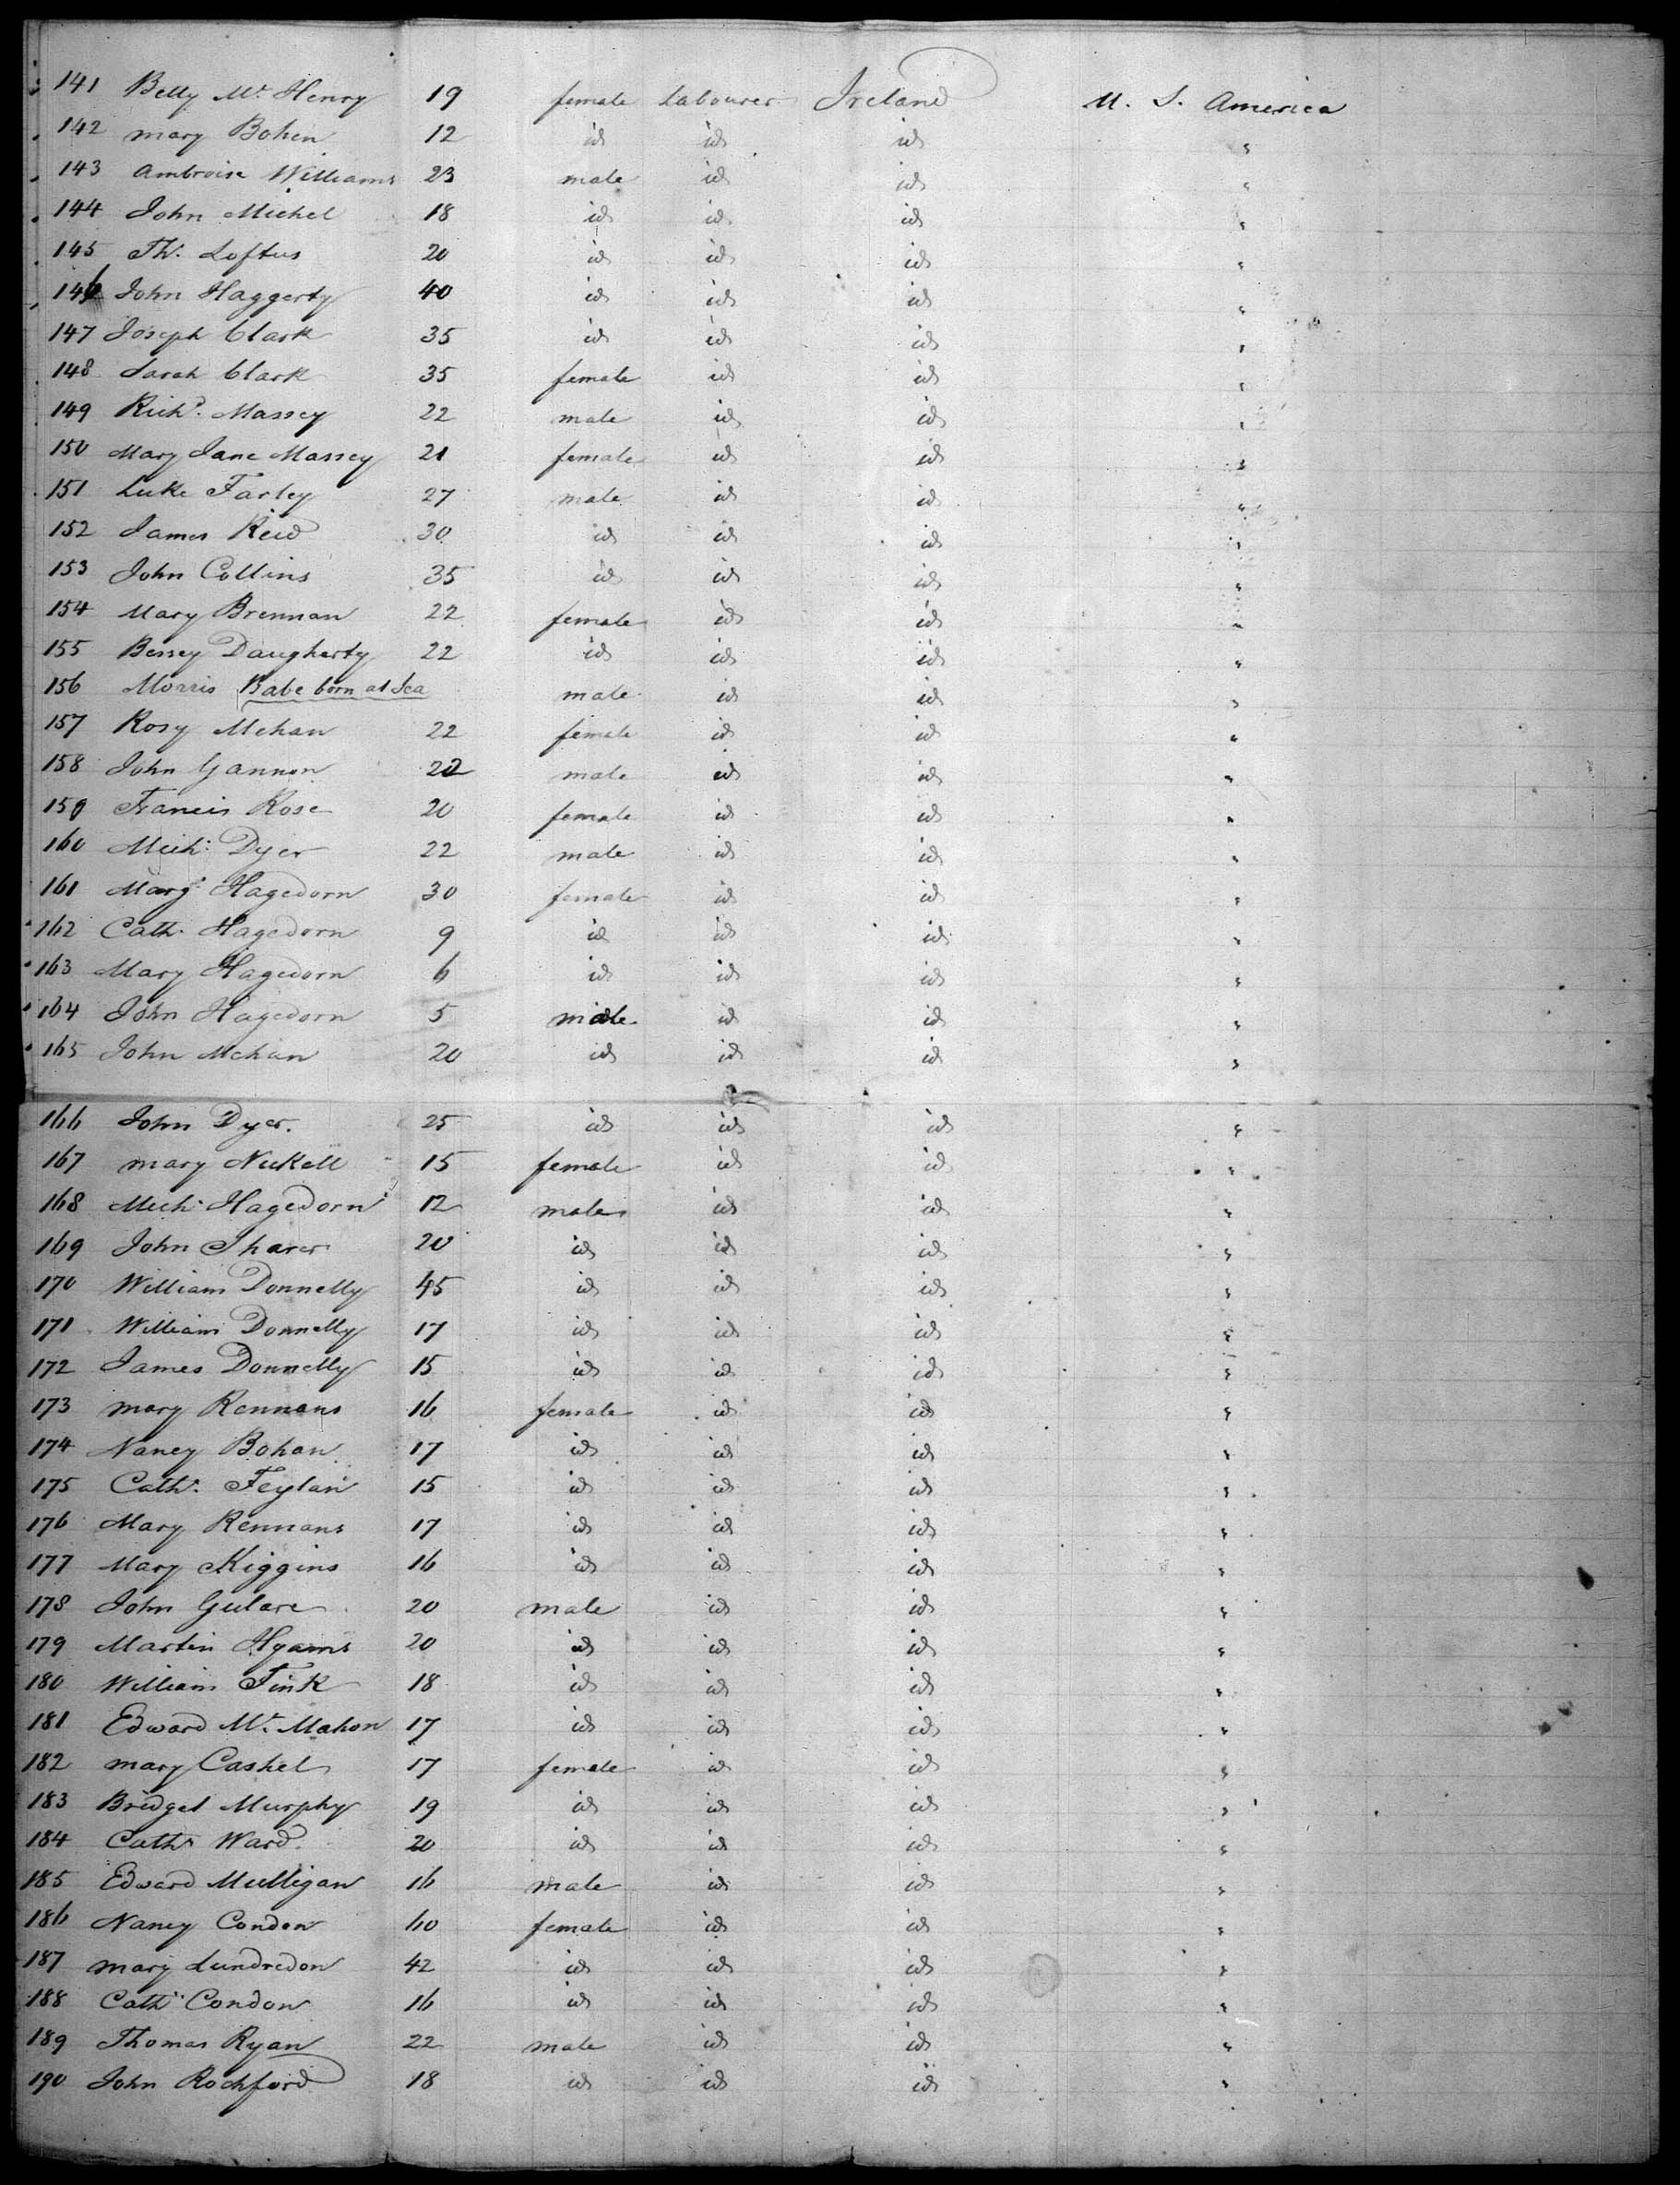 141 Betty Mc Henry 19 female Labourer Ireland U. S. America
142 mary Bohen 12 id id id "
143 Ambroise Williams 23 male id id "
144 John Michel 18 id id id "
145 Th. Loftus 20 id id id "
146 John Haggerty 40 id id id "
147 Joseph Clark 35 id id id "
148 Sarah Clark 35 female id id "
149 Richd. Massey 22 male id id "
150 Mary Jane Massey 21 female id id "
151 Luke Farley 27 male id id "
152 James Reid 30 id id id "
153 John Collins 35 id id id "
154 Mary Brennan 22 female id id "
155 Bessey Daugherty 22 id id id "
156 Morris Babe born at Sea male id id "
157 Rosy Mehan 22 female id id "
158 John Gannon 22 male id id "
159 Francis Rose 20 female id id "
160 Mich: Dyer 22 male id id "
161 Marg. Hagedorn 30 female id id "
162 Cath. Hagedorn 9 id id id "
163 Mary Hagedorn 6 id id id "
164 John Hagedorn 5 male id id "
165 John Mehan 20 id id id "
166 John Dyer. 25 id id id "
167 mary Nickell 15 female id id "
168 Mich. Hagedorn 12 male id id "
169 John Sharer 20 id id id "
170 William Donnelly 45 id id id "
171 William Donnelly 17 id id id "
172 James Donnelly 15 id id id "
173 mary Rennans 16 female id id "
174 Nancy Bohan 17 id id id "
175 Cath. Feylan 15 id id id "
176 Mary Rennans 17 id id id "
177 Mary Kiggins 16 id id id "
178 John Gulare 20 male id id "
179 Martin Hyams 20 id id id "
180 William Fink 18 id id id "
181 Edward Mc. Mahon 17 id id id "
182 mary Cashel 17 female id id "
183 Bridget Murphy 19 id id id "
184 Cath. Ward 20 id id id "
185 Edward Mulligan 16 male id id "
186 Nancy Condon 60 female id id "
187 mary Lundredon 42 id id id "
188 Cath. Condon 16 id id id "
189 Thomas Ryan 22 male id id "
190 John Rochford 18 id id id "